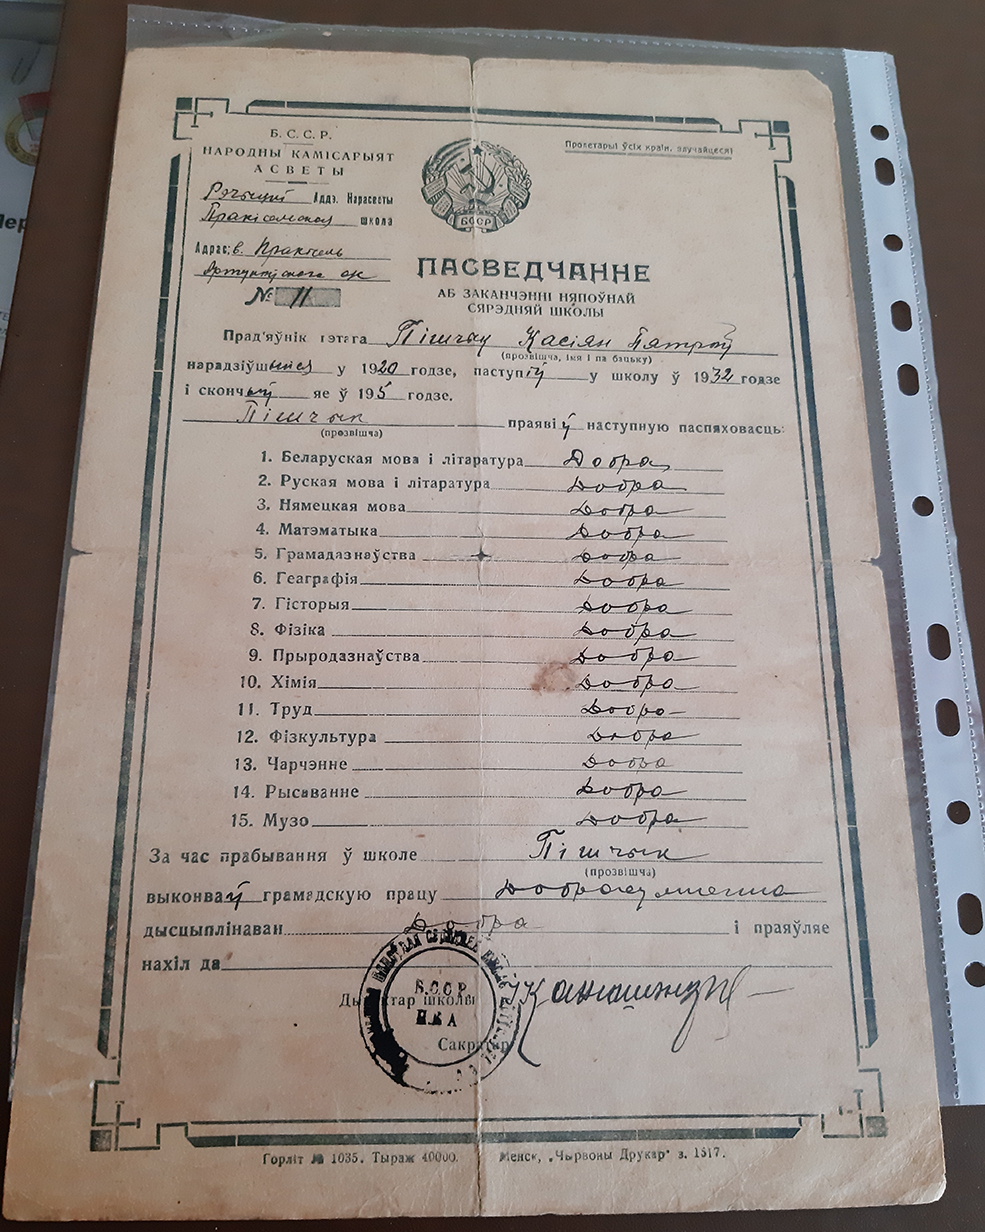 Б. С. С. Р.
НАРОДНЫ КАМІСАРЫЯТ
АСВЕТЫ
Аддз. Нарасветы
школа
Адрас: в.
№ 11
Пролетарыі ўсіх краін, злучайцеся!
БССР
ПАСВЕДЧАННЕ
АБ ЗАКАНЧЭННІ НЯПОЎНАЙ
СЯРЭДНЯЙ ШКОЛЫ
Прад'яўнік гэтага Пішчык Касіян Пятроў
(прозвішча, імя і па бацьку)
нарадзіўшыйся у 1920 годзе, паступіў у школу ў 1932 годзе
і скончыў яе ў 195 годзе.
Пішчык праявіў наступную паспяховасць:
(прозвішча)
1. Беларуская мова і літаратура Добра
2. Руская мова і літаратура Добра
3. Нямецкая мова Добра
4. Матэматыка Добра
5. Грамадазнаўства Добра
6. Геаграфія Добра
7. Гісторыя Добра
8. Фізіка Добра
9. Прыродазнаўства Добра
10. Хімія Добра
11. Труд Добра
12. Фізкультура Добра
13. Чарчэнне Добра
14. Рысаванне Добра
15. Музо Добра
За час прабывання ў школе Пішчык
(прозвішча)
выконваў грамадскую працу
дысцыплінаван Добра і праяўляе
нахіл да
Дырэктар школы
Б.С.С.Р.
Н.К.А
Сакратар
Горліт № 1035. Тыраж 40000. Менск, „Чырвоны Друкар" з. 1517.